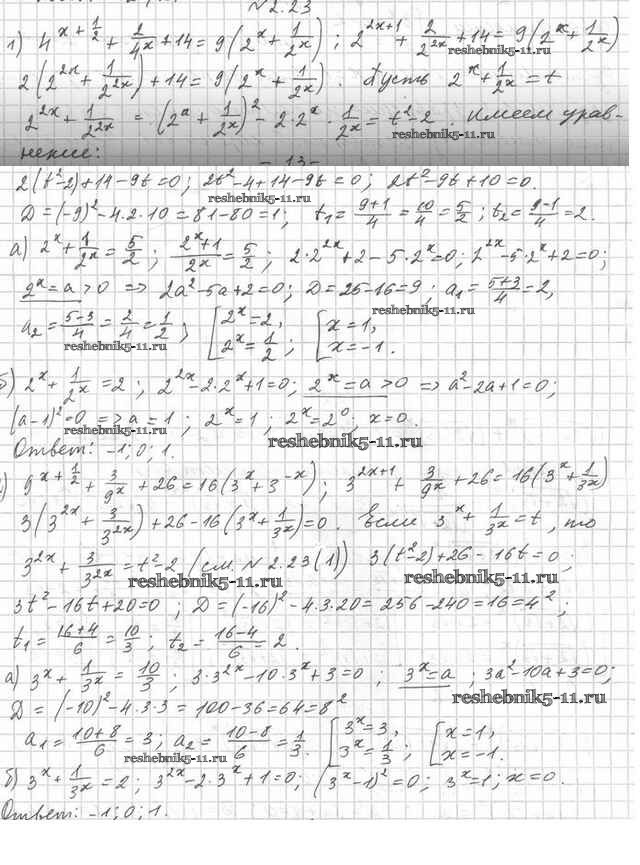 N 2.23
1) 4^{x+1/2} + 2/4^x + 14 = 9(2^x + 1/2^x) ; 2^{2x+1} + 2/2^{2x} + 14 = 9(2^x + 1/2^x)
2(2^{2x} + 1/2^{2x}) + 14 = 9(2^x + 1/2^x) . Пусть 2^x + 1/2^x = t
2^{2x} + 1/2^{2x} = (2^x + 1/2^x)^2 - 2·2^x · 1/2^x = t^2 - 2 . Имеем урав-
reshebnik5-11.ru
нение:
- 13 -
2(t^2-2)+14-9t=0; 2t^2-4+14-9t=0; 2t^2-9t+10=0.
reshebnik5-11.ru
D=(-9)^2-4·2·10=81-80=1; t1=(9+1)/4=10/4=5/2; t2=(9-1)/4=2.
а) 2^x+1/2^x=5/2; (2^x+1)/2^x=5/2; 2·2^{2x}+2-5·2^x=0; 2^{2x}-5·2^x+2=0;
2^x=a>0 => 2a^2-5a+2=0; D=25-16=9; a1=(5+3)/4=2,
a2=(5-3)/4=2/4=1/2; [2^x=2, 2^x=1/2; [x=1, x=-1.
reshebnik5-11.ru
б) 2^x+1/2^x=2; 2^{2x}-2·2^x+1=0; 2^x=a>0 => a^2-2a+1=0;
(a-1)^2=0 => a=1; 2^x=1; 2^x=2^0; x=0.
Ответ: -1; 0; 1.
reshebnik5-11.ru
) 9^{x+1/2} + 3/9^x + 26 = 16(3^x+3^{-x}); 3^{2x+1} + 3/9^x + 26 = 16(3^x+1/3^x)
3(3^{2x}+3/3^{2x})+26-16(3^x+1/3^x)=0. Если 3^x+1/3^x=t, то
3^{2x}+3/3^{2x}=t^2-2 (см. N 2.23(1)) 3(t^2-2)+26-16t=0;
reshebnik5-11.ru reshebnik5-11.ru
3t^2-16t+20=0; D=(-16)^2-4·3·20=256-240=16=4^2;
t1=(16+4)/6=10/3; t2=(16-4)/6=2.
а) 3^x+1/3^x=10/3; 3·3^{2x}-10·3^x+3=0; 3^x=a; 3a^2-10a+3=0;
D=(-10)^2-4·3·3=100-36=64=8^2
reshebnik5-11.ru
a1=(10+8)/6=3; a2=(10-8)/6=1/3. [3^x=3, 3^x=1/3; [x=1, x=-1.
reshebnik5-11.ru
б) 3^x+1/3^x=2; 3^{2x}-2·3^x+1=0; (3^x-1)^2=0; 3^x=1; x=0.
Ответ: -1; 0; 1.